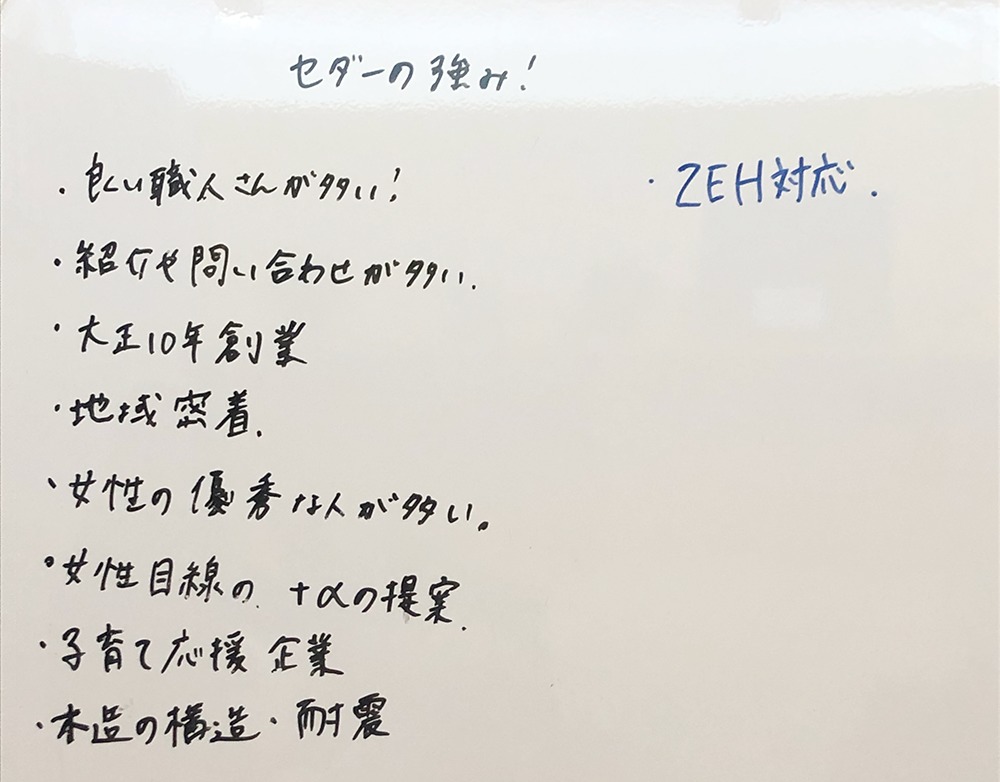 セダーの強み!
・良い職人さんが多い!
・紹介や問い合わせが多い.
・大正10年創業
・地域密着.
・女性の優秀な人が多い。
・女性目線の +αの提案.
・子育て応援企業
・木造の構造・耐震
・ZEH対応.